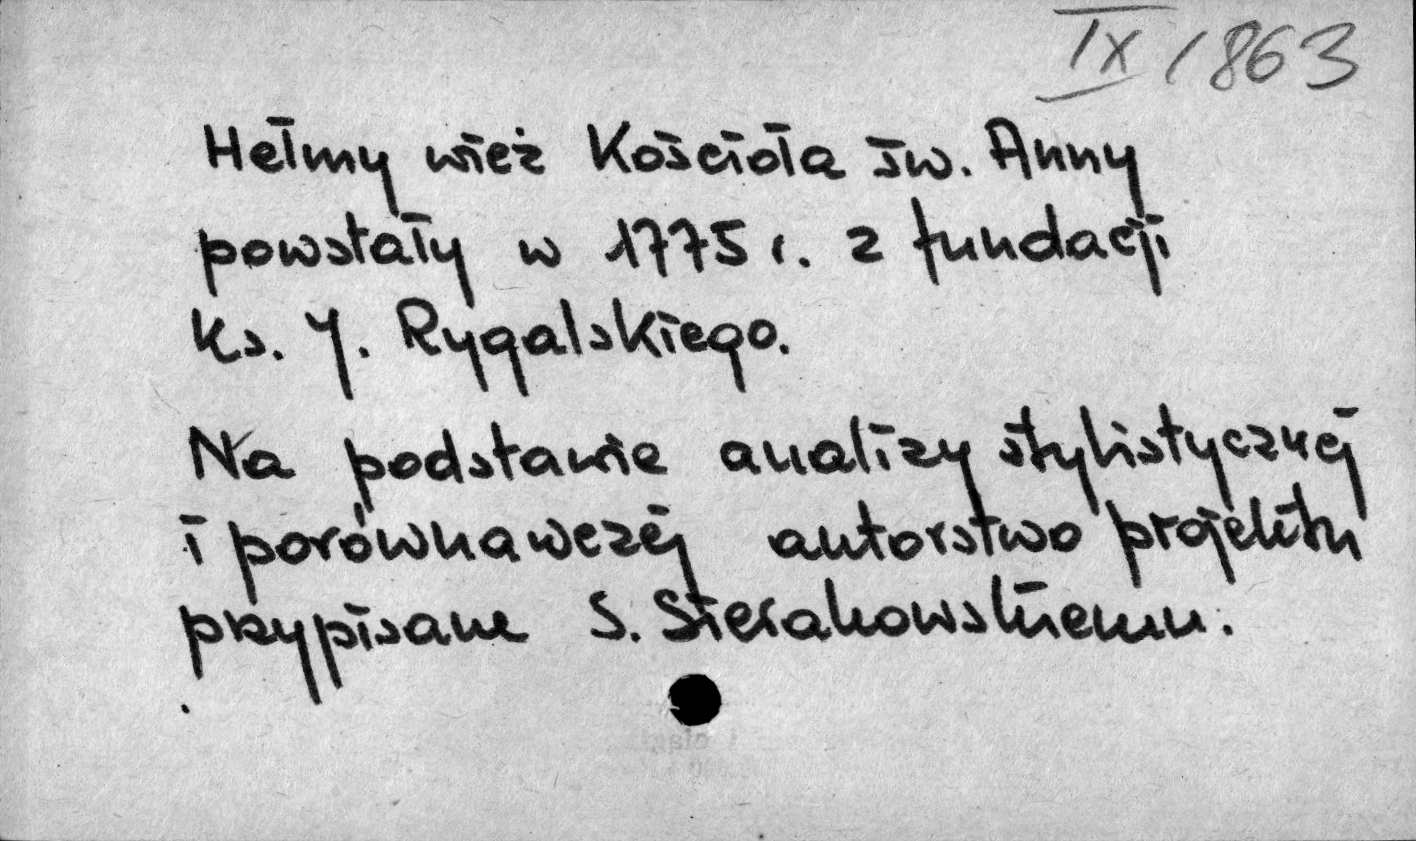 IX/863
Hełmy wież Kościoła św. Anny
powstały w 1775 r. z fundacji
Ks. J. Rygalskiego.
Na podstawie analizy stylistycznej
i porównawczej autorstwo projektu
przypisane S. Sierakowskiemu.